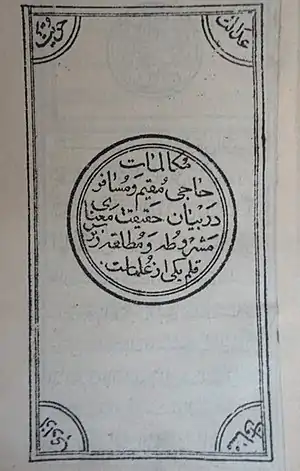 عدالت
حریت
مکالمات
حاجی مُقیم وَ مُسافر
در بَیان حَقیقَت مَعنای
مَشروطه وَ مُطلقه از
قلم یکی از عُلماست